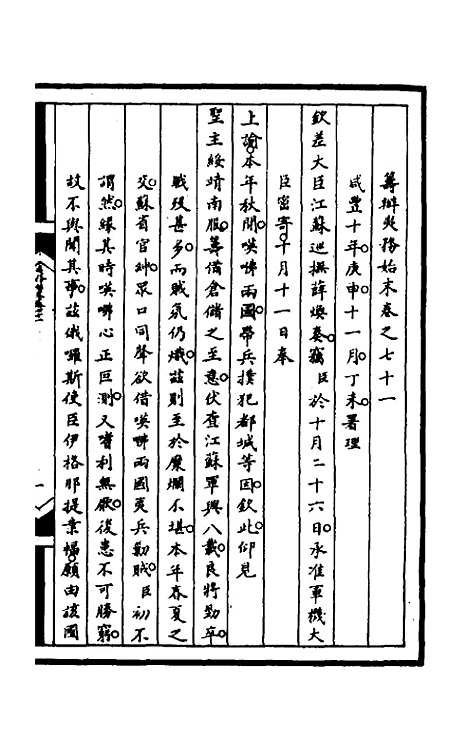 籌辦夷務始末卷之七十一
咸豐十年庚申十一月丁未署理
欽差大臣江蘇巡撫薛煥奏竊臣於十月二十六日承准軍機大
臣密寄十月十一日奉
上諭本年秋間㖷㗒兩國帶兵撲犯都城等因欽此仰見
聖主綏靖南服籌備倉儲之至意伏查江蘇軍興八載良將勁卒
戰歿甚多而賊氛仍熾茲則至於糜爛不堪本年春夏之
交蘇省官紳眾口同聲欲借㖷㗒兩國夷兵勦賊臣初不
謂然緣其時㖷㗒心正叵測又嗜利無厭後患不可勝窮
故不與聞其事茲俄囉斯使臣伊格那提業幅願由該國